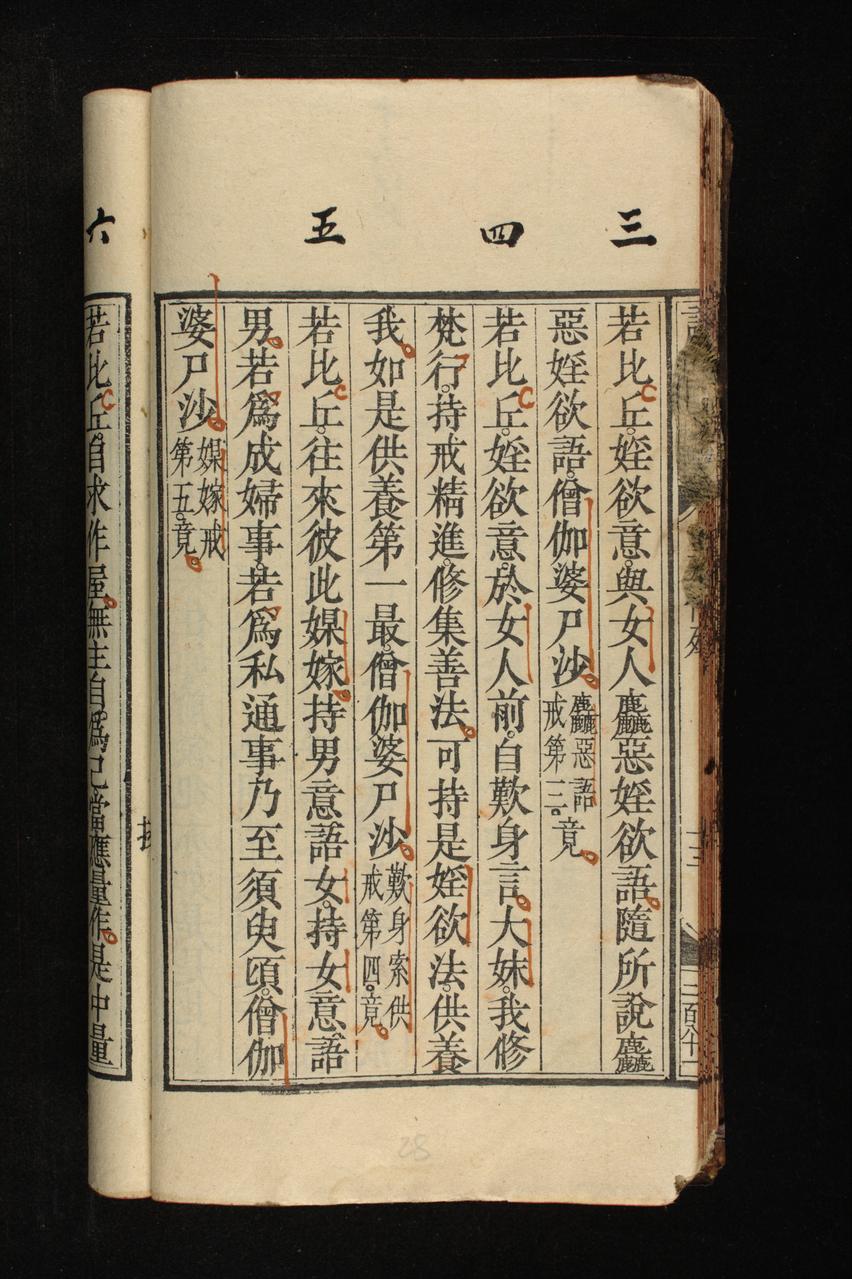 三
四
五
六
若比丘。婬欲意。與女人麤惡婬欲語。隨所說麤
惡婬欲語。僧伽婆尸沙。麤惡語戒第三。竟。
若比丘。婬欲意。於女人前。自歎身言。大妹。我修
梵行。持戒精進。修集善法。可持是婬欲法。供養
我。如是供養第一最。僧伽婆尸沙。歎身索供戒第四。竟。
若比丘。往來彼此媒嫁。持男意語女。持女意語
男。若爲成婦事。若爲私通事。乃至須臾頃。僧伽
婆尸沙。媒嫁戒第五。竟。
若比丘。自求作屋。無主自爲己。當應量作。是中量
28